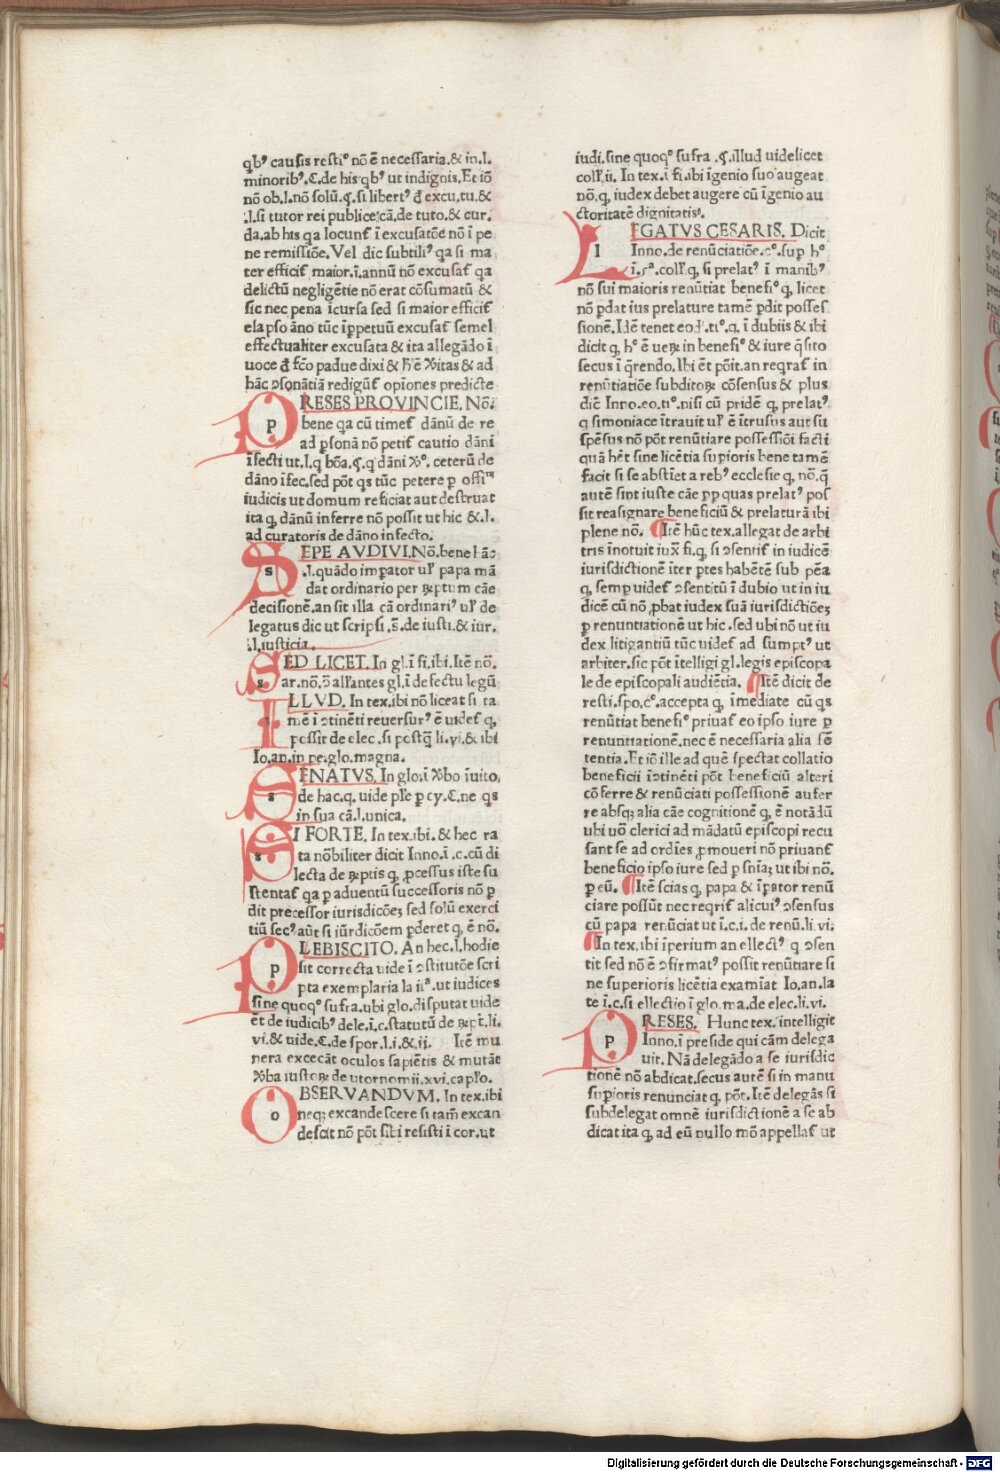 qbꝰ causis restiᵒ nō ē necessaria.& in.l.
minoribꝰ.C.de his qbꝰ ut indignis.Et iō
nō ob.l.nō solū.ꝗ.si libertꝰ đ excu.tu.&
.l.si tutor rei publice:cā.de tuto.& cur.
da.ab his qa locunt̄ ī excusatōe nō ī pe
ne remissiōe. Vel dic subtiliꝰ qa si ma
ter efficit̄ maior.ī.annū nō excusat̄ qa
delictū negligētie nō erat cōsumatū &
sic nec pena īcursa sed si maior efficit̄
elapso āno tūc īppetuū excusat̄ semel
effectualiter excusata & ita allegādo ī
uoce đ fc̄o padue dixi & h̄ ē ꝟitas & ad
hāc ↄsonātiā redigūt̄ opīones predicte
PRESES PROVINCIE. Nō.
bene qa cū timet̄ dānū de re
ad ꝑsonā nō petit̄ cautio dāni
īfecti ut.l.q bōa.ꝗ.q dāni ꝟᵒ. ceterū de
dāno īfec.sed pōt qs tūc petere ꝑ offiᵐ
iudicis ut domum reficiat aut destruat
ita ꝙ dānū inferre nō possit ut hic &.l.
ad curatoris de dāno infecto.
SEPE AVDIVI.Nō.bene hāc
.l.quādo imꝑator ul̓ papa mā
dat ordinario per ꝶptum cāe
decisionē.an sit illa cā ordinariꝰ ul̓ de
legatus dic ut scripsi.s̄.de iusti.& iur.
.l.iusticia.
SED LICET. In gl.ī fi.ibi.Itē nō.
ar.nō.ↄ̄ all'antes gl.ī defectu legū
ILLVD. In tex.ibi nō liceat si ta
mē ī ↄtinēti reuersurꝰ ē uidet̄ ꝙ
possit de elec.si postq̄ li.vi.& ibi
Io.an.in pe.glo.magna.
SENATVS. In glo.ī ꝟbo iuito,
de hac.q. uide pl̓e ꝑ cy.C.ne qs
in sua cā.l.unica.
SI FORTE. In tex.ibi.& hec ra
ta nōbiliter dicit Inno.ī .c.cū di
lecta de ꝶptis ꝙ ꝓcessus iste su
stentat̄ qa ꝑ aduentū successoris nō ꝑ
dit precessor iurisdicōeꝫ sed solū exerci
tiū secꝰ aūt si iūrdicōem ꝑderet ꝙ ē nō.
PLEBISCITO. An hec.l.hodie
sit correcta uide ī ↄstitutōe scri
pta exemplaria la iiᵃ.ut iudices
sine quoqᵒ sufra.ubi glo.disputat uide
et̄ de iudicibꝰ dele.ī.c.statutū de ꝶpt̄.li.
vi.& uide.C.de spor.l.i.& ii. Itē mu
nera excecāt oculos sapiētis & mutāt
ꝟba iustoꝶ deutornomii.xvi.capl̓o.
OBSERVANDVM. In tex.ibi
neqꝫ excandescere si tam̄ excan
descit nō pōt sibi resisti ī cor.ut
iudi.sine quoqᵒ sufra .ꝗ.illud uidelicet
coll̓.ii. In tex.ī fi.ibi īgenio suo augeat
nō.ꝙ iudex debet augere cū īgenio au
ctoritatē dignitatisꝰ.
LEGATVS CESARIS. Dicit
Inno.de renūciatiōe.cᵒ.sup hᵒ
ī.rᵃ.coll̓.ꝙ si prelatꝰ ī manibꝰ
nō sui maioris renūtiat benefiᵒ ꝙ licet
nō ꝑdat ius prelature tamē ꝑdit posses
sionē.Idē tenet eod̓.tiᵒ.q.ī dubiis & ibi
dicit ꝙ hᵒ ē ueꝶ in benefiᵒ & iure q̄sito
secus ī q̄rendo.Ibi ēt pōit.an reqrat̄ in
renūtiatiōe subditoꝶ cōsensus & plus
diē Inno.eo.tiᵒ.nisi cū pridē ꝙ prelatꝰ
q simoniace ītrauit ul̓ ē ītrusus aut su
spēsus nō pōt renūtiare possessiōi facti
quā hēt sine licētia supioris bene tamē
facit si se abstīet a rebꝰ ecclesie ꝙ nō.q̄
autē sint iuste cāe pp quas prelatꝰ pos
sit reasignare beneficiū & prelaturā ibi
plene nō. ¶Itē hūc tex.allegat de arbi
tris īnotuit iux̄ fi.ꝙ si ↄsentit̄ in iudicē
iurisdictionē īter ꝑtes habētē sub pēa
ꝙ semp uidet̄ ↄsentitū ī dubio ut in iu
dicē cū nō ꝓbat iudex suā iurisdictiōeꝫ
ꝑ renuntiationē ut hic .sed ubi nō ut iu
dex litigantiū tūc uidet̄ ad sumptꝰ ut
arbiter.sic pōt ītelligi gl.legis episcopa
le de episcopali audiētia. ¶Itē dicit de
resti.spo.c̄ᵒ.accepta ꝙ īmediate cū qs
renūtiat benefiᵒ priuat̄ eo ipso iure ꝑ
renuntiationē.nec ē necessaria alia sē
tentia.Et iō ille ad quē spectat collatio
beneficii īↄtinēti pōt beneficiū alteri
cōferre & renūciati possessionē aufer
re absqꝫ alia cāe cognitionē ꝙ ē notādū
ubi uō clerici ad mādatū episcopi recu
sant se ad ordīes ꝓmoueri nō priuant̄
beneficio ipso iure sed ꝑ snīaꝫ ut ibi nō.
ꝑ eū. ¶Itē scias ꝙ papa & īꝑator renū
ciare possūt nec reqrit̄ alicuiꝰ ↄsensus
cū papa renūciat ut ī.c.i.de renū.li.vi.
¶In tex.ibi īperium an ellectꝰ q ↄsen
tit sed nō ē ↄfirmatꝰ possit renūtiare si
ne superioris licētia examīat Io.an.la
te ī.c.si ellectio ī glo.ma.de elec.li.vi.
PRESES. Hunc tex. intelligit
Inno.ī preside qui cām delega
uit. Nā delegādo a se iurisdic
tionē nō abdicat.secus autē si in manu
supioris renunciat ꝙ pōt.Itē delegās si
subdelegat omnē iurisdictionē a se ab
dicat ita ꝙ ad eū nullo mō appellat̄ ut
Digitalisierung gefördert durch die Deutsche Forschungsgemeinschaft - DFG